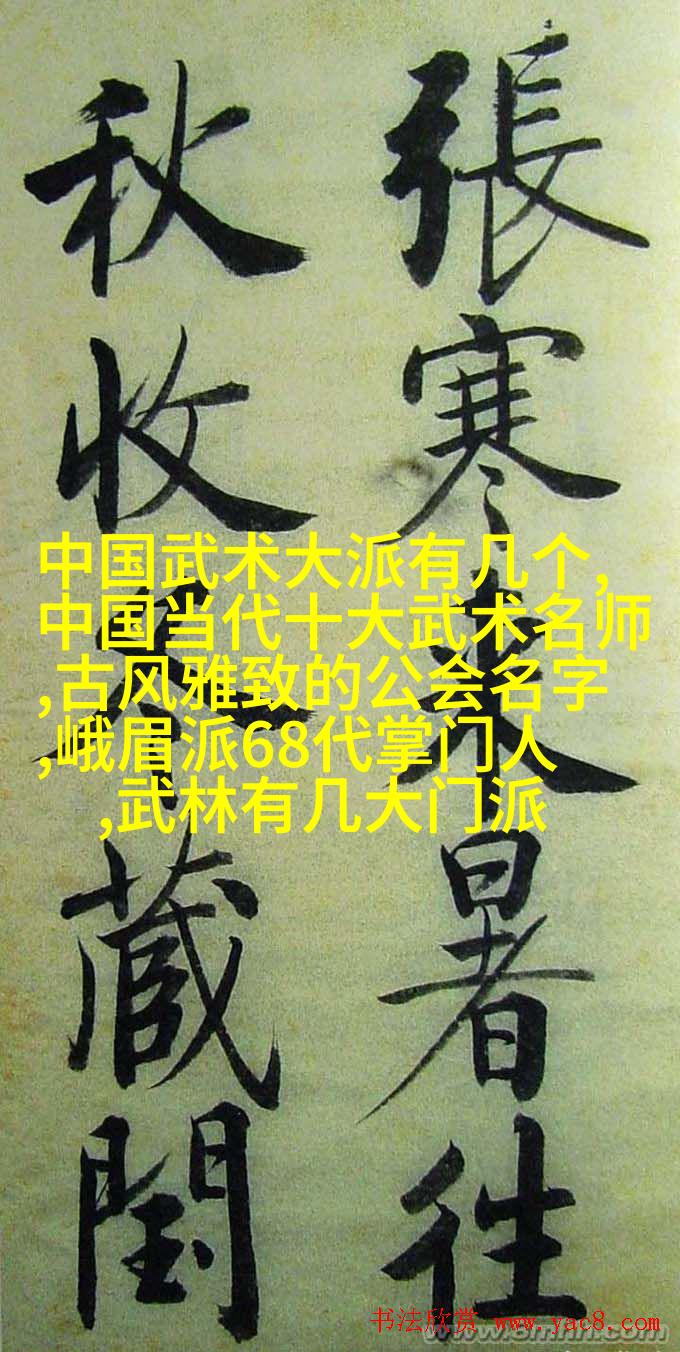 張寒来暑往
秋收冬藏閏
中国武术大派有几个,
中国当代十大武术名师
,古风雅致的公会名字
,峨眉派68代掌门人
,武林有几大门派
书法欣赏 www.yac8.com